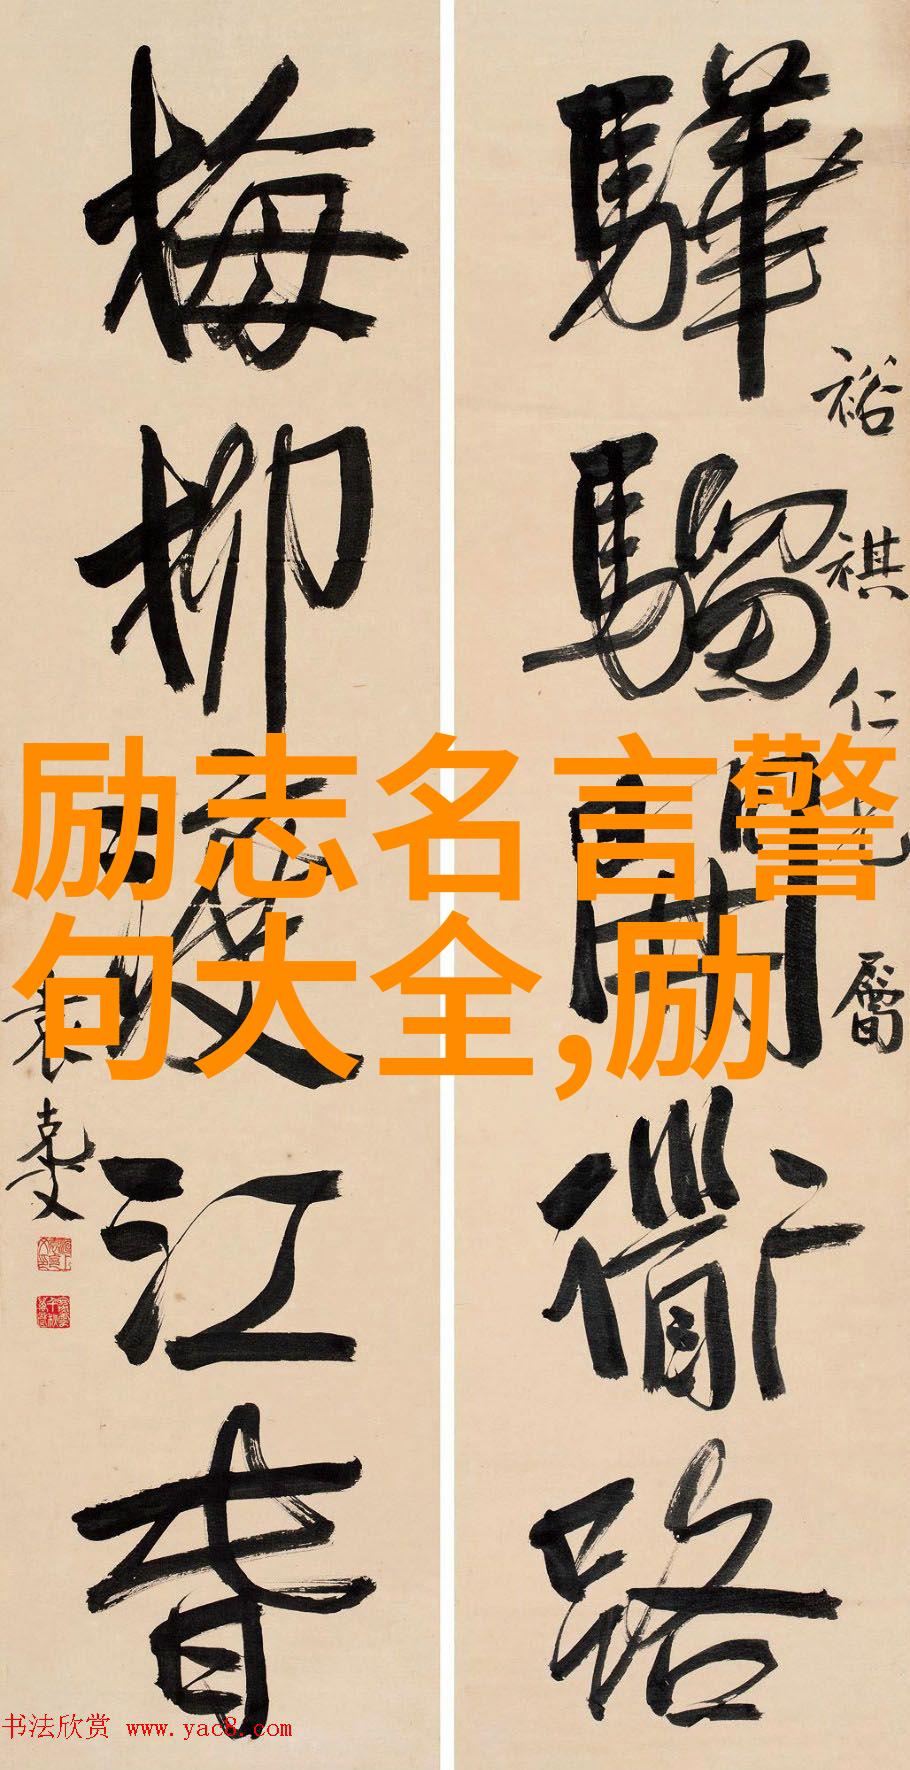 驊騮開衢路
裕祺仁兄屬
梅柳渡江春
袁克文
励志名言警
句大全,励
书法欣赏 www.yac8.com